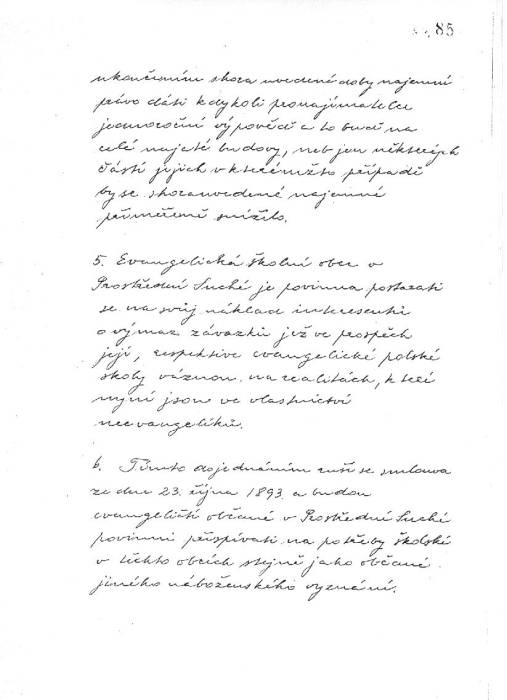 85
ukončením shora uvedené doby nájemní
právo dáti kdykoli pronajímatelce
jednoroční výpověď a to buď na
celé najeté budovy, neb jen některých
částí jejich v kterémžto případě
by se shorauvedené nájemné
přiměřeně snížilo.
5. Evangelická školní obec v
Prostřední Suché je povinna postarati
se na svůj náklad interesentů
o výmaz závazků jež ve prospěch
její, respektive evangelické polské
školy váznou na realitách, které
nyní jsou ve vlastnictví
neevangelíků.
6. Tímto dojednáním ruší se smlouva
ze dne 23. října 1893 a budou
evangeličtí občané v Prostřední Suché
povinni přispívati na potřeby školské
v těchto obcích stejně jako občané
jiného náboženského vyznání.